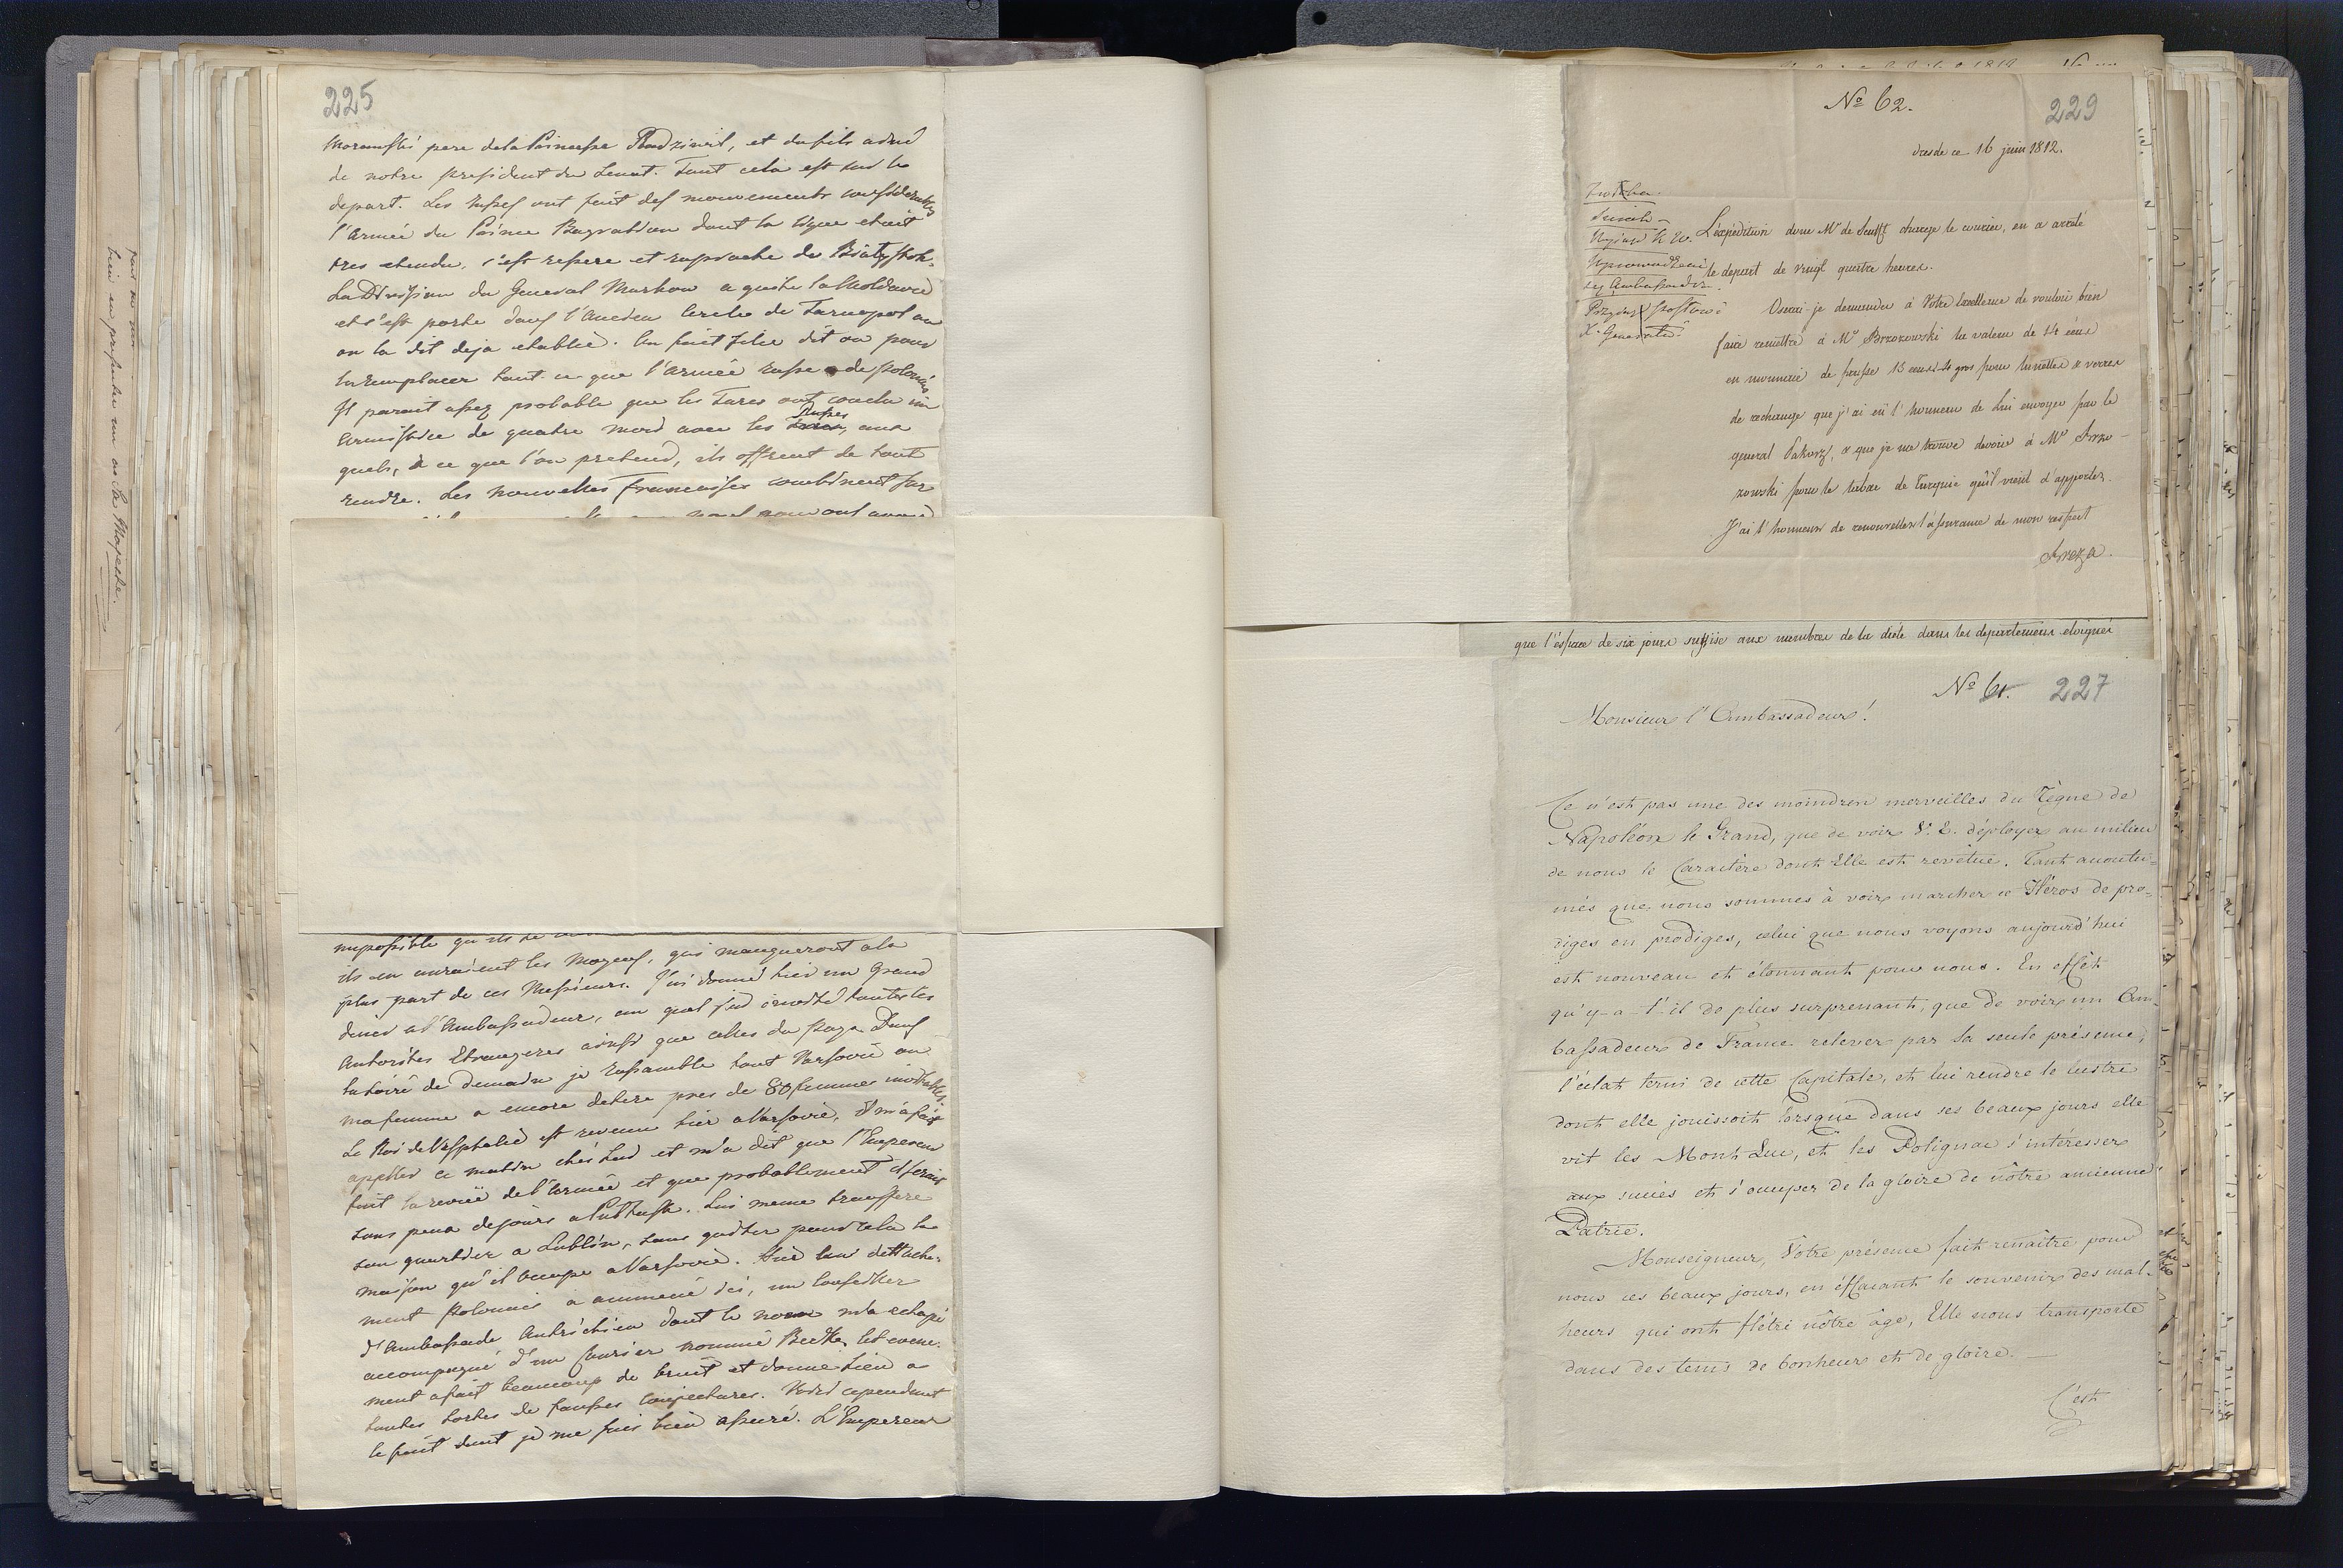 225
pere de la Princesse Radzivil, et du fils ainé
de notre president du Senat. Tout cela est sur le
depart. Les Russes ont fait des mouvements considerables
l'Armée du Prince Bagration dont la ligne etoit
tres etendue, s'est reserré et raproché de Białystok.
La Division du General Markow a quitté la Moldavie
et s'est porté dans l'Ancien Cercle de Tarnopol ou
on la dit deja etablie. On fait filer dit on pour
la remplacer tout ce que l'armée russe a de polonais
Il parait assez probable que les Turcs ont conclu un
armistice de quatre mois avec les Russes, aux
quels, à ce que l'on pretend, ils offrent de tout
rendre. Les nouvelles francaises combinent sur
impossible qu'ils
ils en auraient les moyens, qui manqueront a la
plus part de ces Messieurs. J'ai donné hier un grand
diner a l'Ambassadeur, au quel j'ai invité toutes les
Autorités Etrangeres ainsi que celles du pays. Dans
la soiré de demain je rassemble tout Varsovie ou
ma femme a encore deterré pres de 80 femmes invitables.
Le Roi de Vestphalie est revenu hier a Varsovie, il m'a fait
appeller ce matin chés Lui et m'a dit que l'Empereur
fait la revuë de l'armée et que probablement il serait
sous peu de jours a Pultusk. Lui meme transfere
son quartier a Lublin, sans quitter pour cela la
maison qu'il occupe a Varsovie. Hier un dettache-
ment Polonais a ammené ici, un Conseiller
d'Ambassade Autrichien dont le nom m'a echapé
accompagné d'un Courier nommé Beche, cet evene-
ment a fait beaucoup de bruit et donne lieu a
toutes sortes de fausses conjectures. Voici cependant
le fait dont je me suis bien assuré. L'Empereur
bien en presenter un au Sa Majesté.
No 62.
229
dresde ce 16 juin 1812.
L'expédition dont Mr de Senfft charge le courier, en a arreté
le depart de vingt quatre heures.
Oserai-je demander à Votre Excellence de vouloir bien
faire remettre à Mr Brzozowski la valeur de 14 écus
en monnaie de prusse 15 écus 4 gros pour lunettes & verres
de rechange que j'ai eü l'honneur de Lui envoyer par le
general Pakosz, & que je me trouve devoir à Mr Brzo-
zowski pour le tabac de Turquie qu'il vient d'apporter.
J'ai l'honneur de renouveller l'assurance de mon respect
Breza.
que l'éspace de six jours suffise aux membres de la diéte dans les departemens eloignés
No 61.
227
Monsieur l'Ambassadeur!
Ce n'est pas une des moindres merveilles du Règne de
Napoléon le Grand, que de voir V. E. déployer au milieu
de nous le Caractère dont Elle est revêtue. Tant accoutu=
més que nous sommes à voir marcher ce Héros de pro=
diges en prodiges, celui que nous voyons aujourd'hui
est nouveau et étonnant pour nous. En effêt
qu'y-a-t'-il de plus surprenant, que de voir un Am-
bassadeur de France relever par sa seule présence,
l'éclat terni de cette Capitale, et lui rendre le lustre
dont elle jouissoit lorsque dans ses beaux jours elle
vit les Mont Luc, et les Polignac s'intéresser
aux succès et s'occuper de la gloire de nôtre ancienne
Patrie.
Monseigneur, Vôtre présence fait renaître pour
nous ces beaux jours, en éffaçant le souvenir des mal-
heurs qui ont flétri nôtre âge, Elle nous transporte
dans des tems de bonheur et de gloire. —
C'est